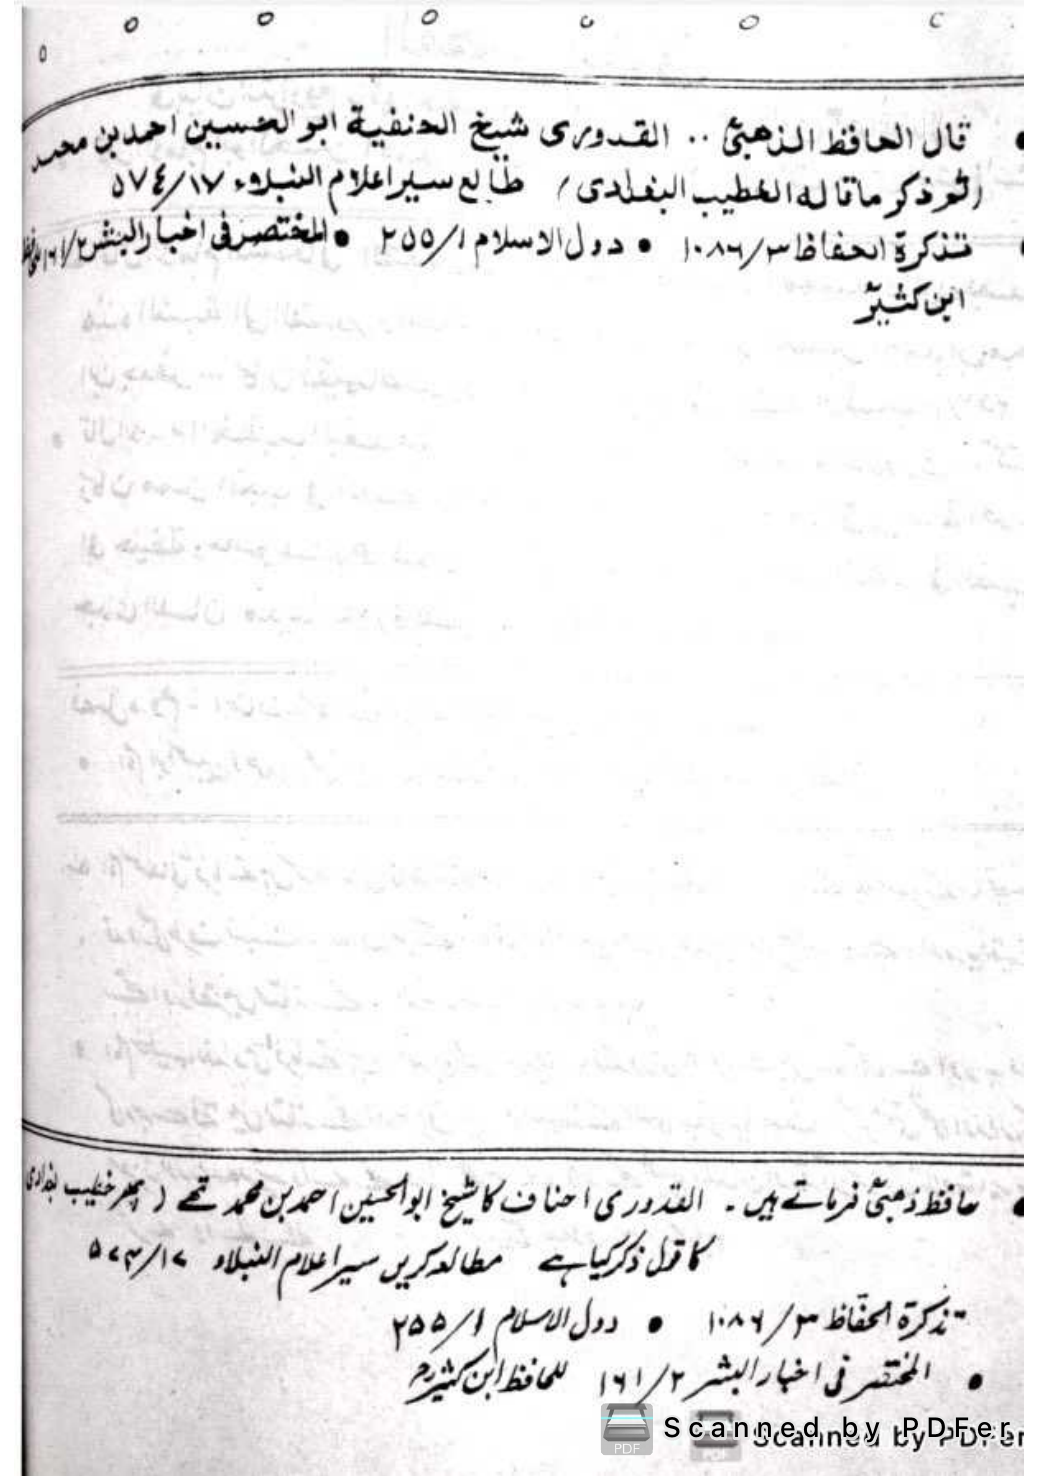 • قال الحافظ الذهبیؒ .. القدوری شیخ الحنفیة ابو الحسین احمد بن محمد
(ثم ذکر ماقاله الخطیب البغدادی) طالع سیر اعلام النبلاء ١٧/٥٧٤
• تذکرة الحفاظ ٣/١٠٨٦ • دول الاسلام ١/٢٥٥ • المختصر فی اخبار البشر ٢/١٦١
ابن کثیرؒ
• حافظ ذہبیؒ فرماتے ہیں ۔ القدوری احناف کا شیخ ابوالحسین احمد بن محمد تھے (پھر خطیب بغدادی
کا قول ذکر کیا ہے مطالعہ کریں سیر اعلام النبلاء ۱۷/۵۷۴
تذکرة الحفاظ ۳/۱۰۸۶ • دول الاسلام ۱/۲۵۵
• المختصر فی اخبار البشر ۲/۱۶۱ للحافظ ابن کثیرؒ
Scanned by PDFer
Scanned by PDFer